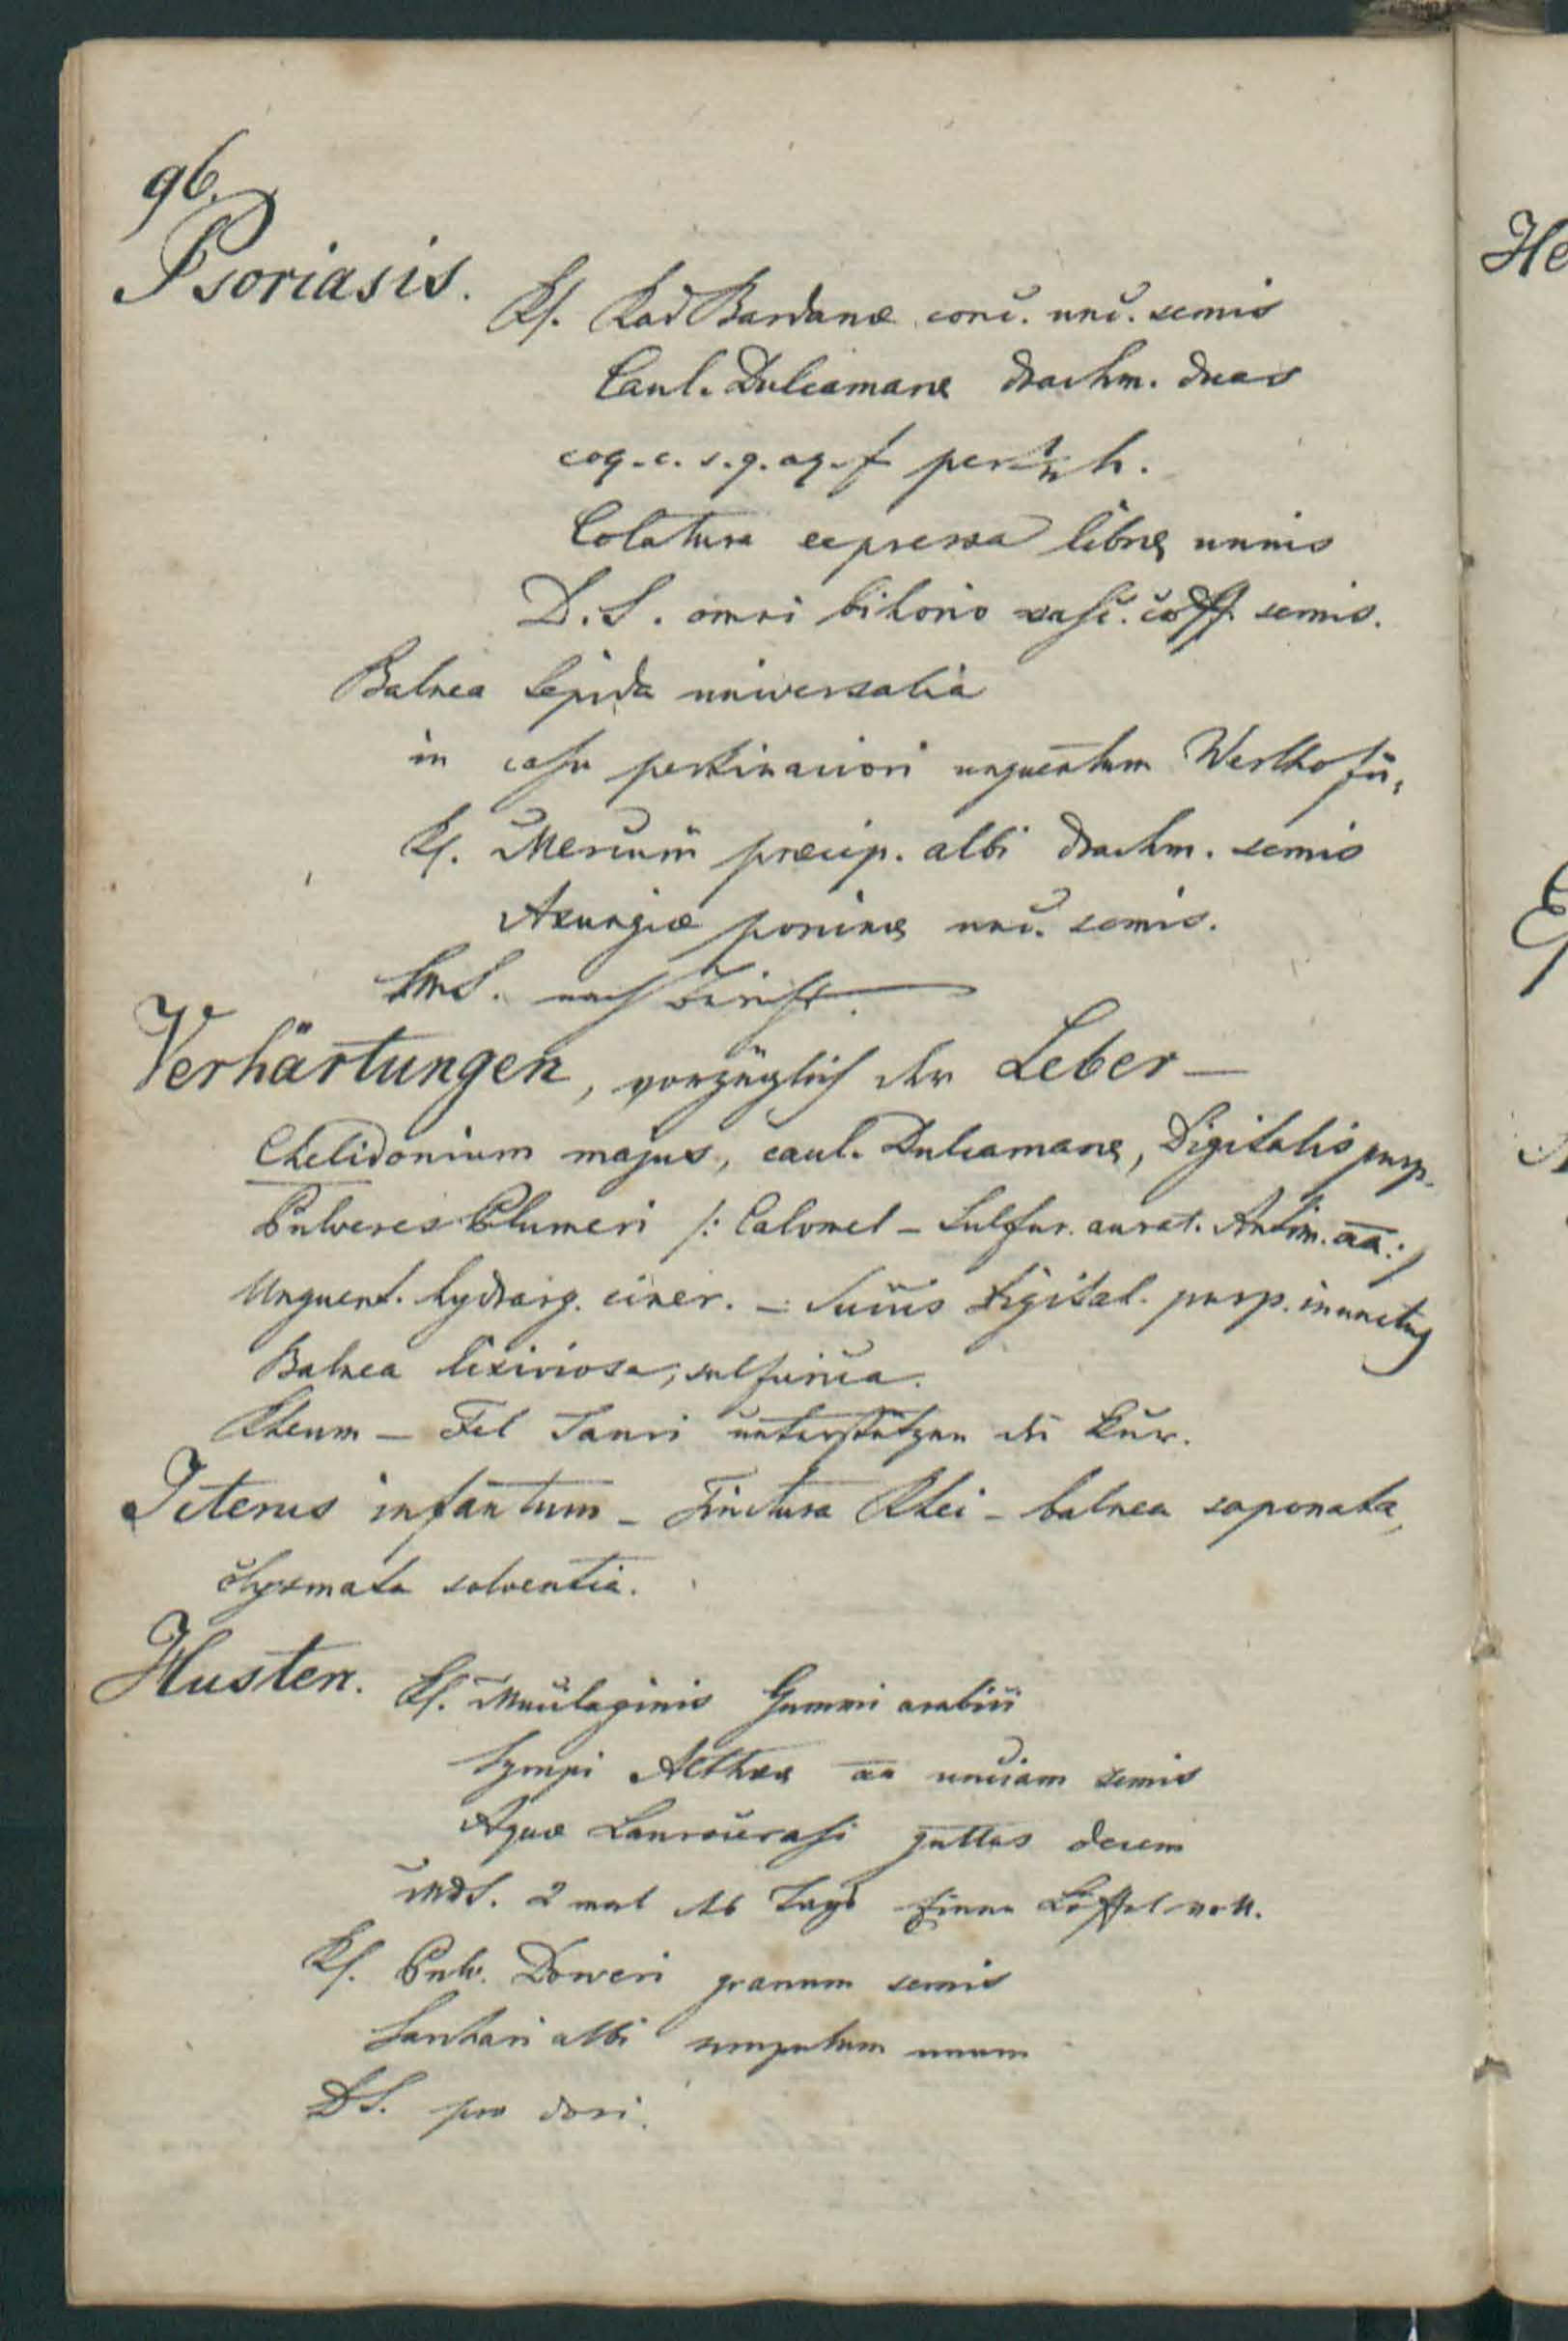 96.
Psoriasis.
Rf. Rad Bardanæ conc. unc. semis
Caul. Dulcamaræ drachm. duas
coq. c. s. q. aq. f per ½ h.
Colatura expressa libræ unius
D. S. omni bihorio vasc. coff. semis.
Balnea tepida universalia
in casu pertinaciori unguentum Werlhofii,
Rf. Mercurii præcip. albi drachm. semis
Axungiæ porcinæ unc. semis.
S. nach
Verhärtungen, vorzüglich der Leber —
Chelidonium majus, caul. Dulcamaræ, Digitalis purp.
Pulveres Plumeri /: Calomel – Sulfur. aurat. Antim. aa :/
Unguent. hydrarg. ciner. – Succus Digital. purp. inunctus
Balnea lixiviosa, sulfurica.
Rheum – Fel Tauri unterstützen die Kur.
Icterus infantum – Tinctura Rhei – balnea saponata,
Clysmata solventia.
Husten.
Rf. Mucilaginis Gummi arabici
Syrupi Altheæ aa unciam semis
Aquæ Laurocerasi guttas decem
MDS. 2 mal des Tags einen Löffel voll.
Rf. Pulv. Doweri granum semis
Sachari albi scrupulum unum
DS. pro dosi.
He